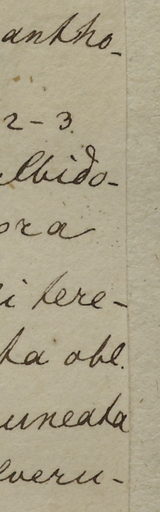 antho-
2-3
albido-
ora
i tere-
ta obl.
uneata
lveru-